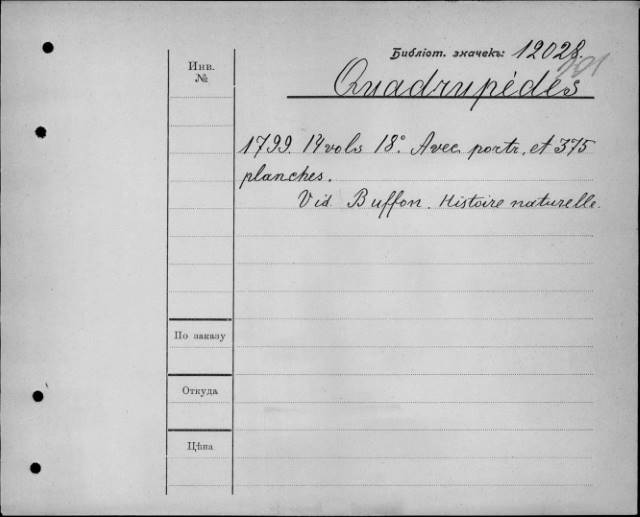 Библіот. значекъ: 12028.
Инв.
№
Quadrupédes
1799. 14 vols 18°. Avec portr. et 375
planches.
Vid. Buffon. Histoire naturelle.
По заказу
Откуда
Цѣна